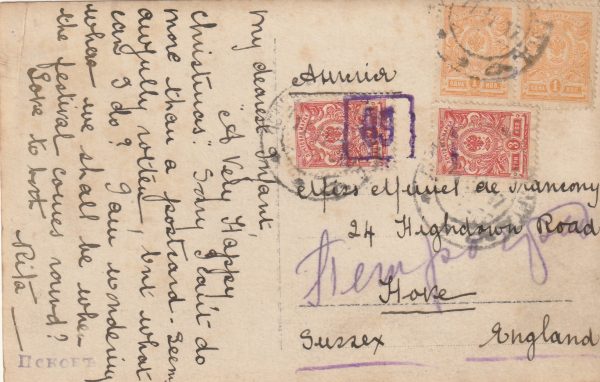 My dearest Infant,
"A Very Happy
Christmas". Sorry I can't do
more than a postcard. Seems
awfully rotten, but what
can I do? I am wondering
where we shall be when
the festival comes round?
Love to both
Rita
Псковъ
Англия
Miss Muriel de Francony
24 Highdown Road
Петроград
Hove
Sussex England